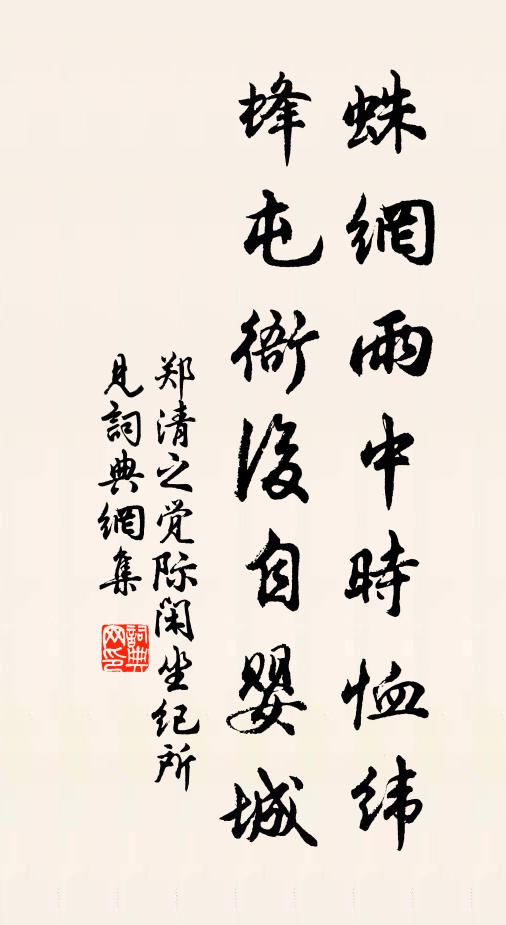 蛛網雨中時恤緯
蜂屯衙後自嬰城
郑清之觉际闲坐纪所
见詞典網集
詞典网印